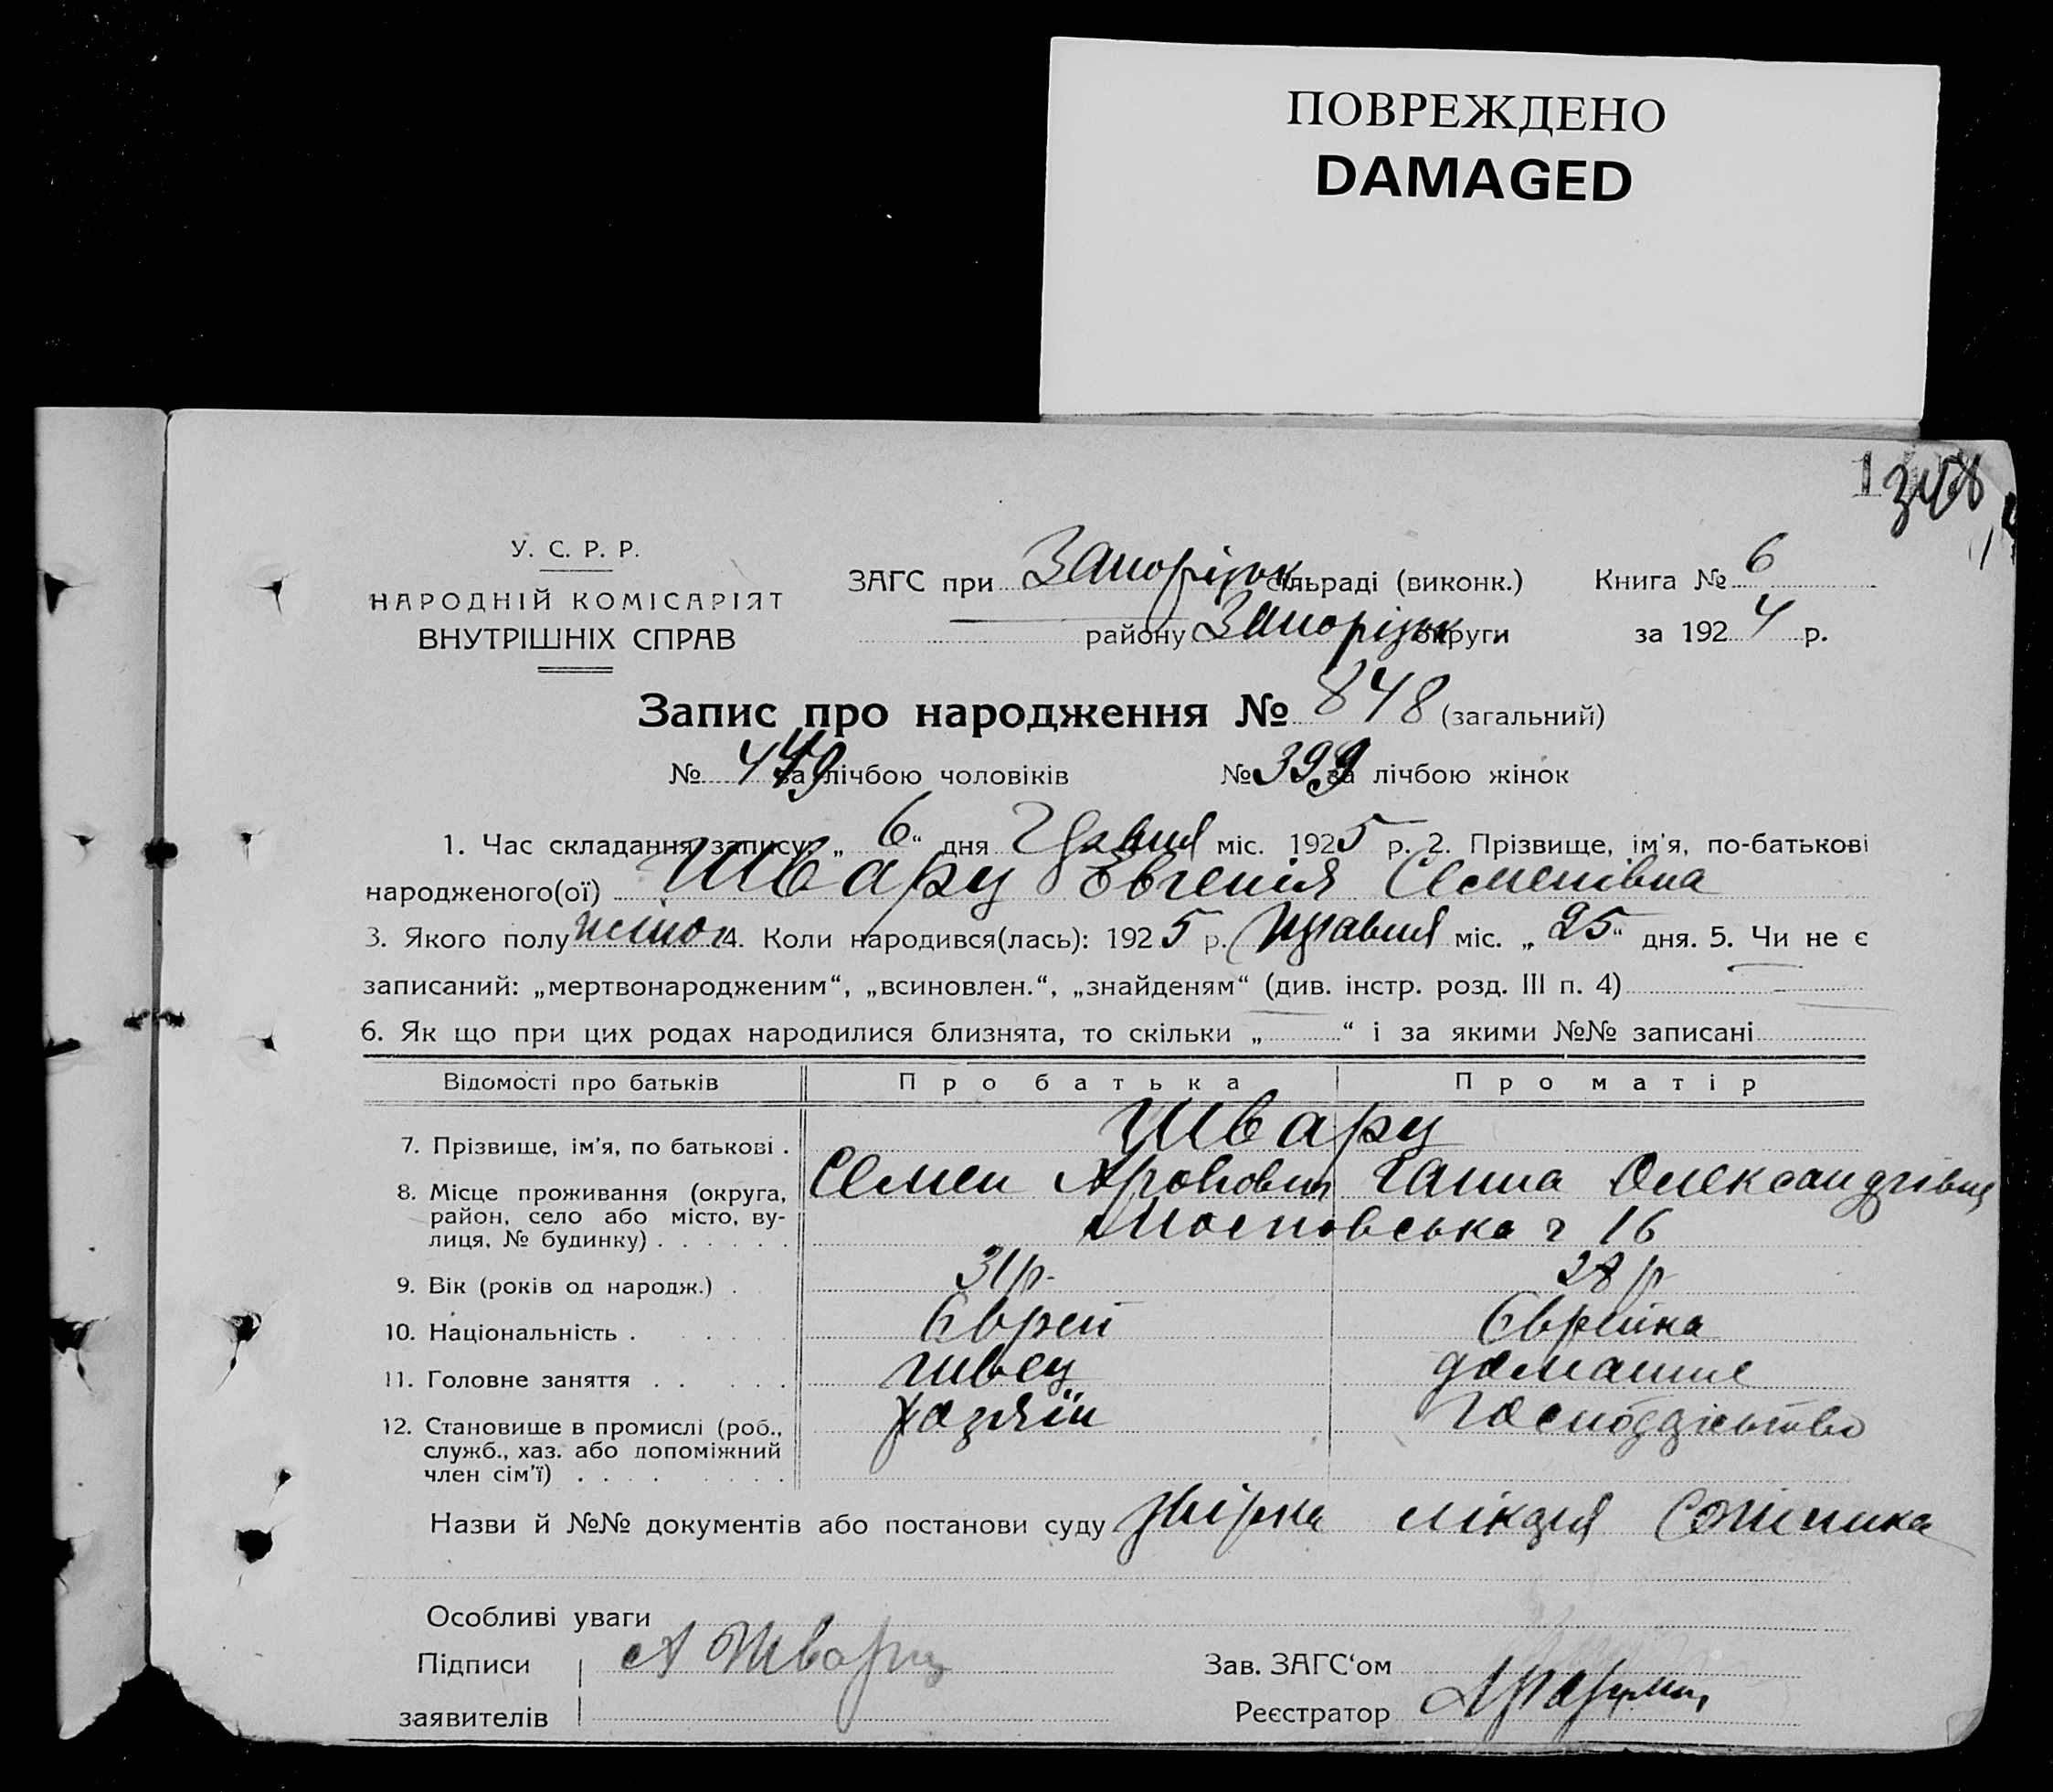 ПОВРЕЖДЕНО
DAMAGED
У. С. Р. Р.
НАРОДНІЙ КОМІСАРІЯТ
ВНУТРІШНІХ СПРАВ
ЗАГС при Запорізьк сільраді (виконк.) Книга № 6
району Запорізьк округи за 1924 р.
Запис про народження № 848 (загальний)
№ 449 за лічбою чоловіків № 399 за лічбою жінок
1. Час складання запису: „ 6 “ дня міс. 1925 р. 2. Прізвище, ім'я, по-батькові
народженого(ої) Шварц Євгенія Семенівна
3. Якого полу жіноч 4. Коли народився(лась): 1925 р. травня міс. „ 25 “ дня. 5. Чи не є
записаний: „мертвонародженим“, „всиновлен.“, „знайденям“ (див. інстр. розд. III п. 4)
6. Як що при цих родах народилися близнята, то скільки „ “ і за якими №№ записані
Відомості про батьків Про батька Про матір
7. Прізвище, ім'я, по батькові . Шварц
Семен Аронович Ганна Олександрівна
8. Місце проживання (округа, район, село або місто, вулиця, № будинку) . . . . . . Московська ч 16
9. Вік (років од народж.) . 31 р. 28 р
10. Національність . Єврей Єврейка
11. Головне заняття . . швец домашнє
12. Становище в промислі (роб., служб., хаз. або допоміжний член сім'ї) . . . . хазяїн господарство
Назви й №№ документів або постанови суду
Особливі уваги
Підписи А Шварц Зав. ЗАГС‘ом
заявителів Реєстратор